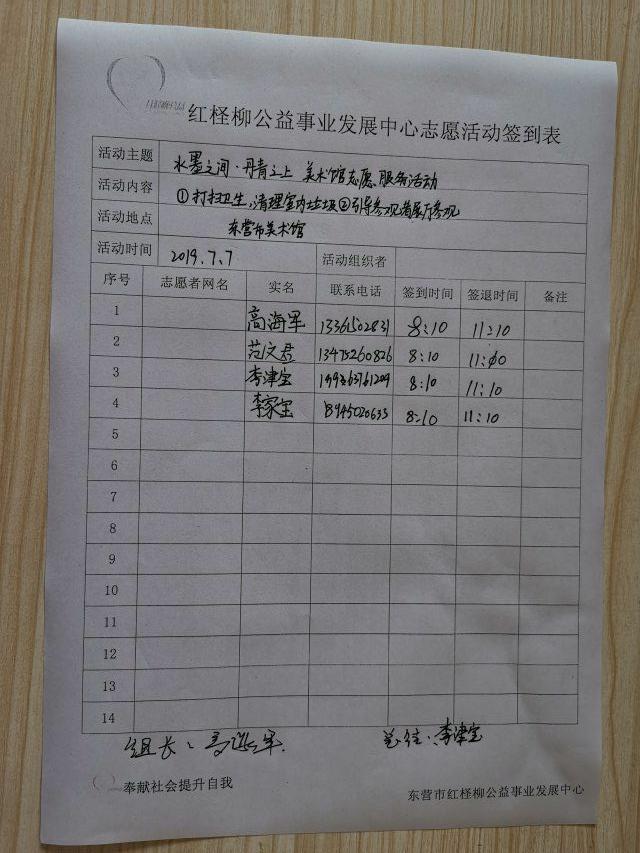 红柽柳公益事业发展中心志愿活动签到表
活动主题 水墨之间·丹青之上 美术馆志愿服务活动
活动内容 ①打扫卫生,清理室内垃圾②引导参观者展厅参观
活动地点 东营市美术馆
活动时间 2019.7.7 活动组织者
序号 志愿者网名 实名 联系电话 签到时间 签退时间 备注
1 高海军 13361502831 8:10 11:10
2 范文君 13475260826 8:10
3 李津宝 8:10 11:10
4 李家宝 8:10 11:10
5
6
7
8
9
10
11
12
13
14
组长:高海军 总结:李津宝
奉献社会提升自我 东营市红柽柳公益事业发展中心